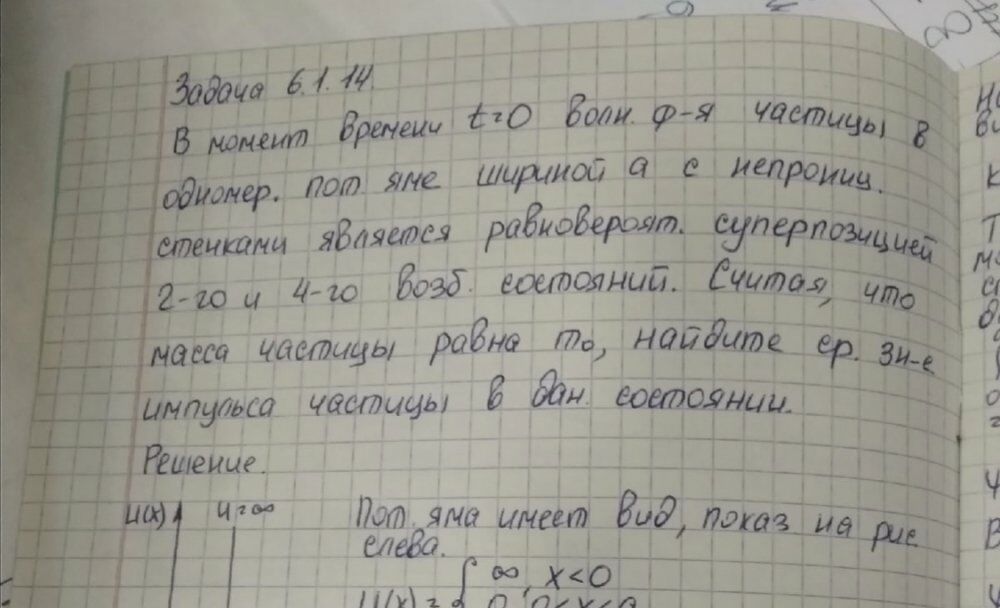 Задача 6.1.14.
В момент времени t=0 волн. ф-я частицы в
одномер. пот яме шириной a с непрониц.
стенками является равновероят. суперпозицией
2-го и 4-го возб. состояний. Считая, что
масса частицы равна m₀, найдите ср. зн-е
импульса частицы в дан. состоянии.
Решение.
U(x) U=∞ Пот. яма имеет вид, показ на рис
слева.
∞, x<0
U(x)= 0, 0<x<a